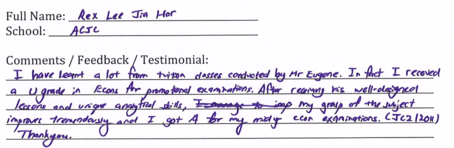 Full Name: Rex Lee Jia Hor
School: ACJC
Comments / Feedback / Testimonial:
I have learnt a lot from tuition classes conducted by Mr Eugene. In fact I received
a U grade in Econs for promotional examinations. After receiving his well-designed
lessons and unique analytical skills, my grasp of the subject
improves tremendously and I got A for my midyr econ examinations. (JC2/2011)
Thankyou.